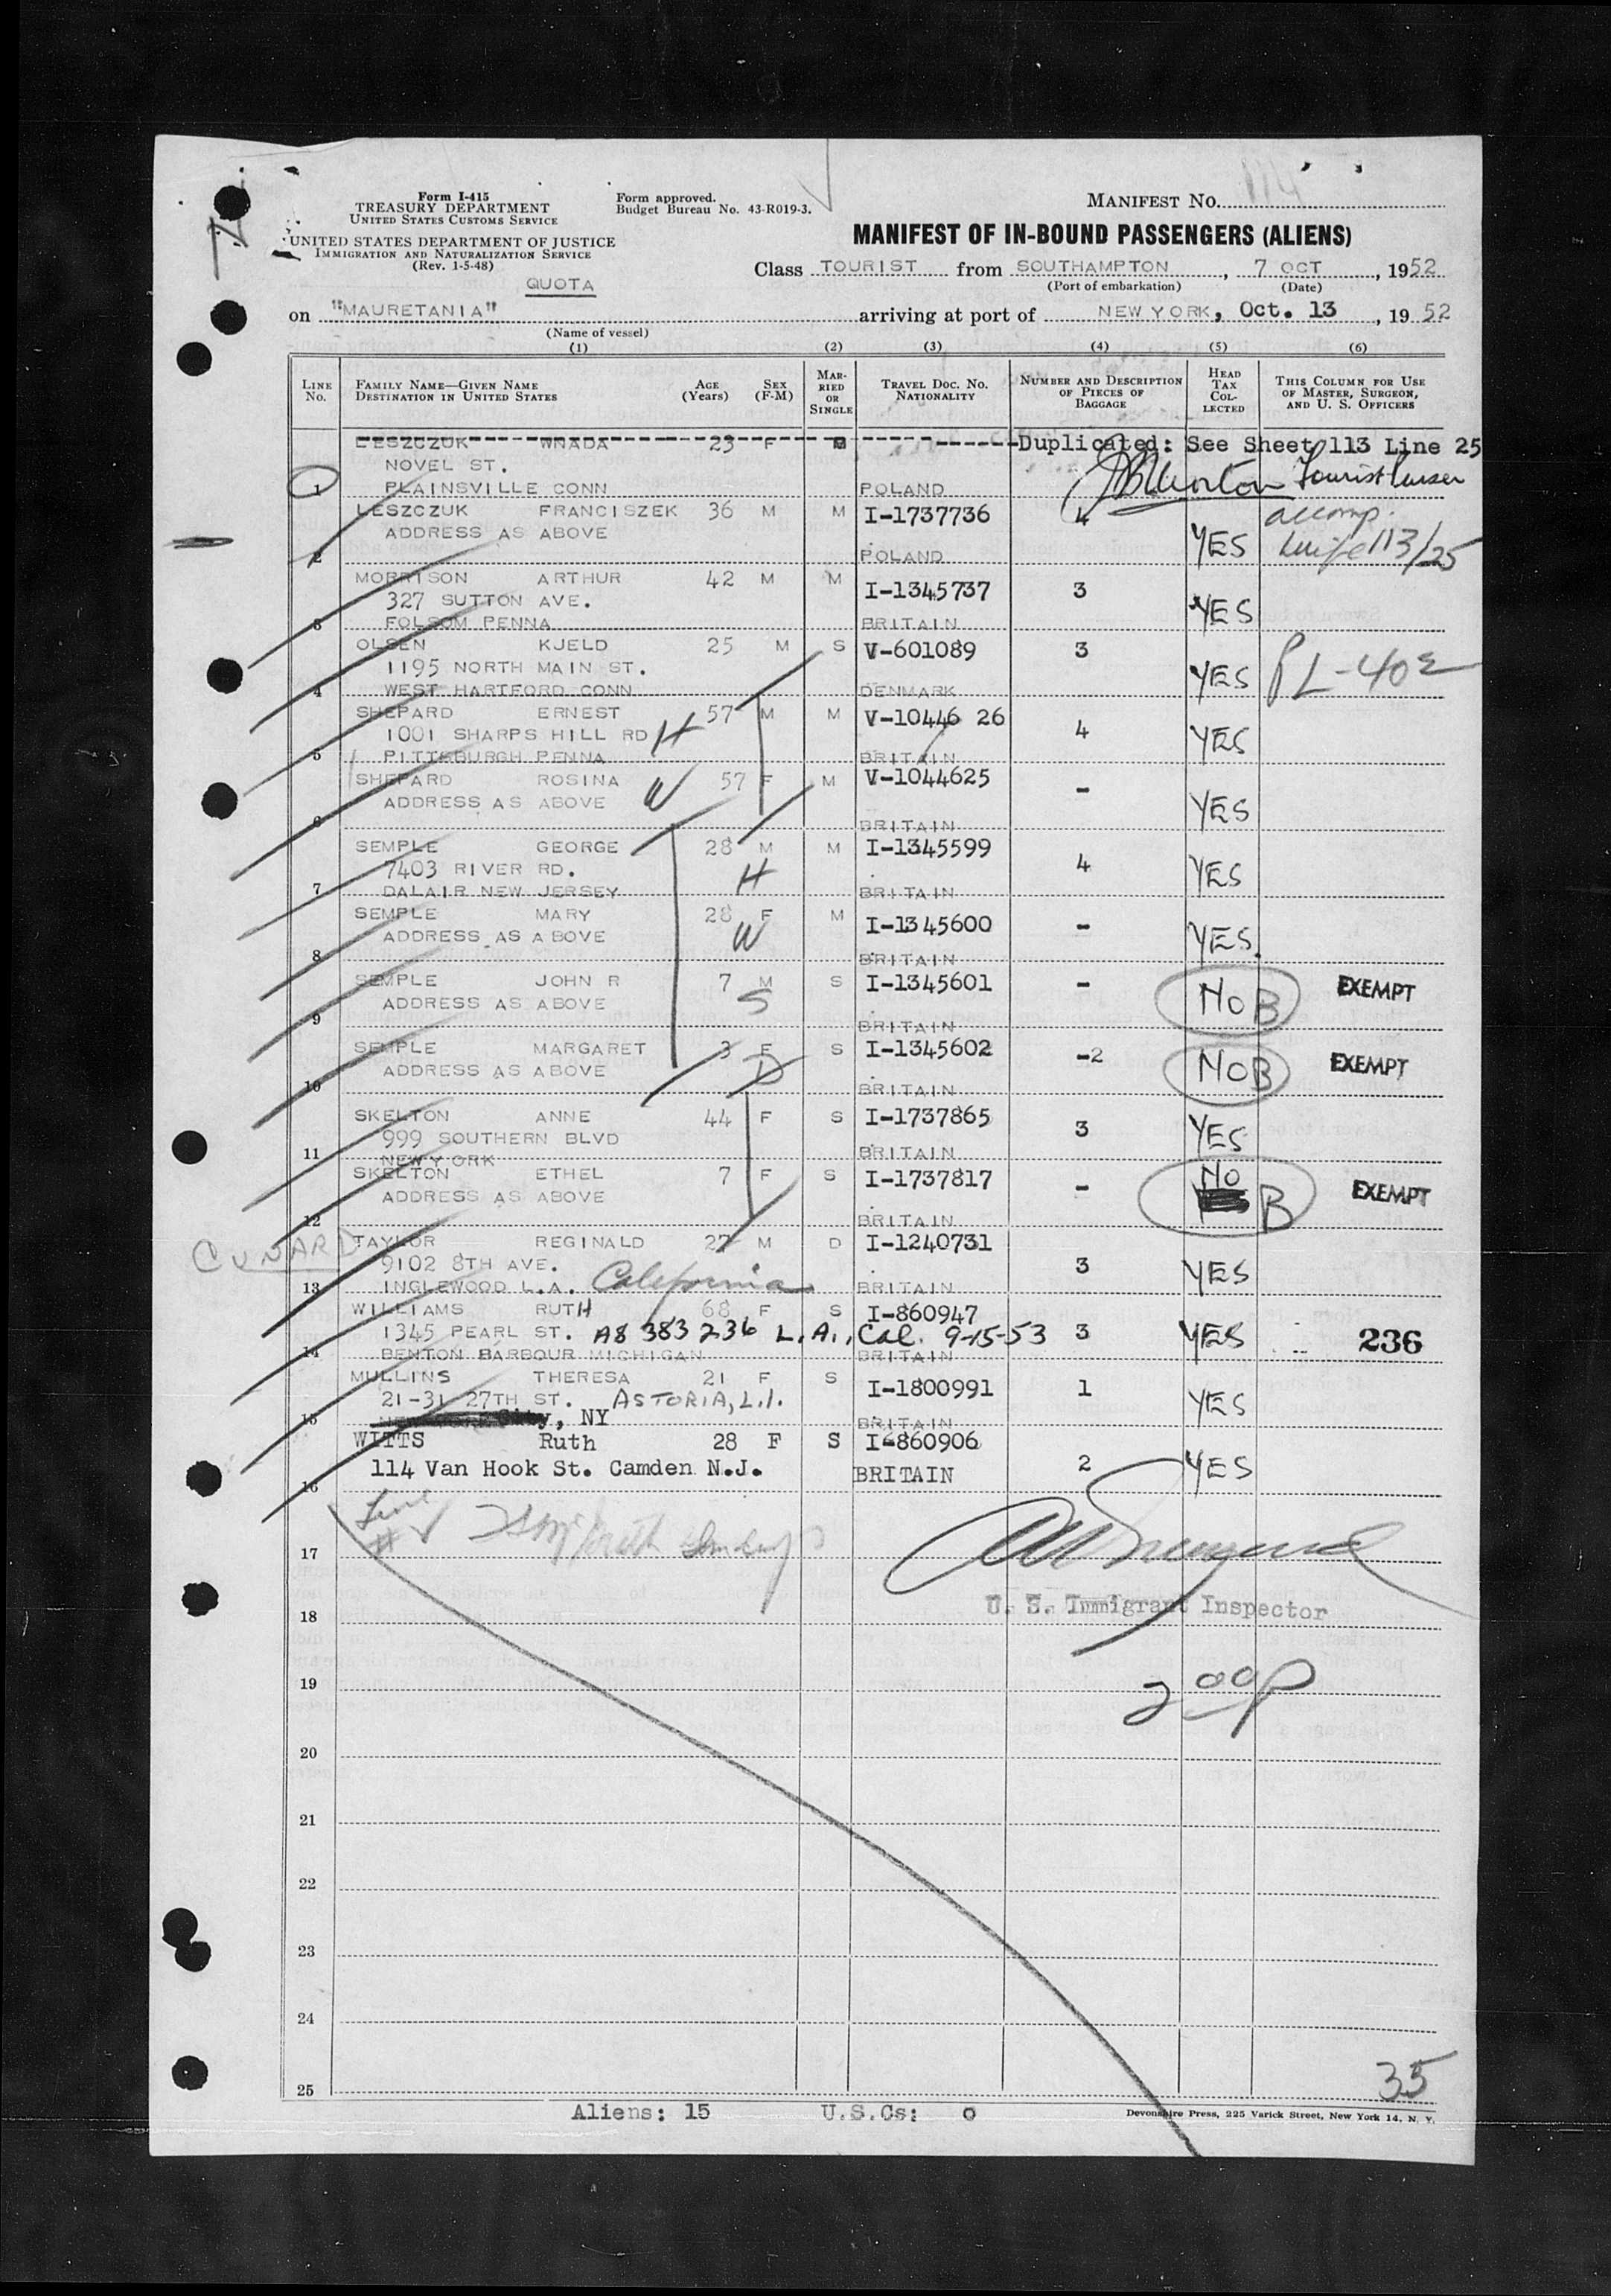 Form I-415
TREASURY DEPARTMENT
UNITED STATES CUSTOMS SERVICE
UNITED STATES DEPARTMENT OF JUSTICE
IMMIGRATION AND NATURALIZATION SERVICE
(Rev. 1-5-48)
Form approved.
Budget Bureau No. 43-R019-3.
MANIFEST NO. 114
MANIFEST OF IN-BOUND PASSENGERS (ALIENS)
Class TOURIST from SOUTHAMPTON, 7 OCT, 1952
(Port of embarkation) (Date)
QUOTA
on "MAURETANIA" arriving at port of NEW YORK, Oct. 13, 1952
(Name of vessel)
(1) (2) (3) (4) (5) (6)
LINE No. FAMILY NAME—GIVEN NAME DESTINATION IN UNITED STATES AGE (Years) SEX (F-M) MARRIED OR SINGLE TRAVEL DOC. NO. NATIONALITY NUMBER AND DESCRIPTION OF PIECES OF BAGGAGE HEAD TAX COLLECTED THIS COLUMN FOR USE OF MASTER, SURGEON, AND U. S. OFFICERS
LESZCZUK WNADA 23 F M Duplicated: See Sheet 113 Line 25
NOVEL ST. Tourist Purser
1 PLAINSVILLE CONN POLAND
LESZCZUK FRANCISZEK 36 M M I-1737736 4 YES accomp.
ADDRESS AS ABOVE wife 113/25
2 POLAND
MORRISON ARTHUR 42 M M I-1345737 3 YES
327 SUTTON AVE.
3 FOLSOM PENNA BRITAIN
OLSEN KJELD 25 M S V-601089 3 YES PL-40
1195 NORTH MAIN ST.
4 WEST HARTFORD CONN DENMARK
SHEPARD ERNEST 57 M M V-10446 26 4 YES
1001 SHARPS HILL RD H
5 PITTSBURGH PENNA BRITAIN
SHEPARD ROSINA W 57 F M V-1044625 - YES
ADDRESS AS ABOVE
6 BRITAIN
SEMPLE GEORGE 28 M M I-1345599 4 YES
7403 RIVER RD. H
7 DALAIR NEW JERSEY BRITAIN
SEMPLE MARY 28 F M I-1345600 - YES.
ADDRESS AS ABOVE W
8 BRITAIN
SEMPLE JOHN R 7 M S I-1345601 - NO B EXEMPT
ADDRESS AS ABOVE S
9 BRITAIN
SEMPLE MARGARET 3 F S I-1345602 -2 NO B EXEMPT
ADDRESS AS ABOVE D
10 BRITAIN
SKELTON ANNE 44 F S I-1737865 3 YES
999 SOUTHERN BLVD
11 NEW YORK BRITAIN
SKELTON ETHEL 7 F S I-1737817 - NO B EXEMPT
ADDRESS AS ABOVE
12 BRITAIN
CUNARD
TAYLOR REGINALD 27 M D I-1240731 3 YES
9102 8TH AVE.
13 INGLEWOOD L.A. California BRITAIN
WILLIAMS RUTH 68 F S I-860947 3 YES 236
1345 PEARL ST. A8 383 236 L.A., Cal. 9-15-53
14 BENTON BARBOUR MICHIGAN BRITAIN
MULLINS THERESA 21 F S I-1800991 1 YES
21-31 27TH ST. ASTORIA, L.I.
15 City, NY BRITAIN
WITTS Ruth 28 F S I-860906 2 YES
114 Van Hook St. Camden N.J. BRITAIN
16
Line
#
17
U. S. Immigrant Inspector
18
19 200P
20
21
22
23
24
35
25
Aliens: 15 U.S.Cs: 0
Devonshire Press, 225 Varick Street, New York 14, N. Y.